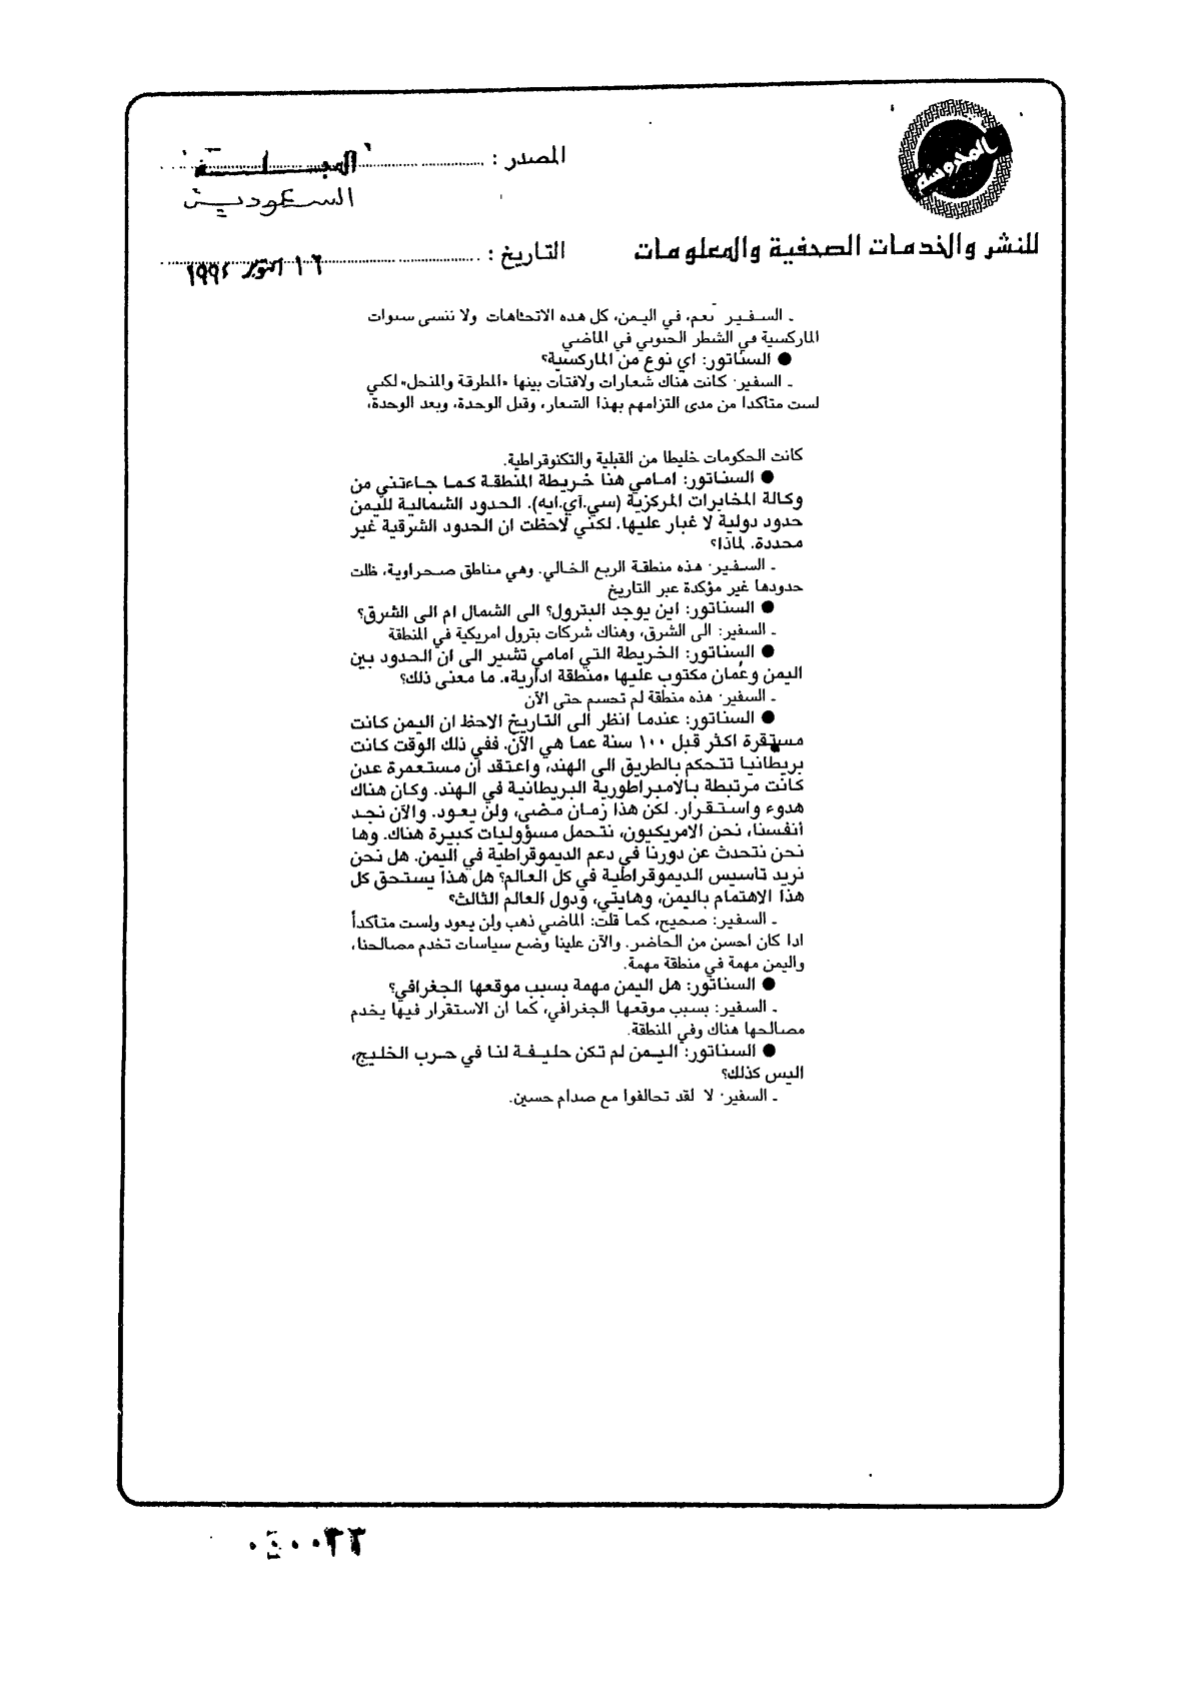 المحروسة
للنشر والخدمات الصحفية والمعلومات
المصدر : المجلة
السعودية
التاريخ : ١٦ اكتوبر ١٩٩٤
ـ السفير نعم، في اليمن، كل هذه الاتجاهات ولا ننسى سنوات
الماركسية في الشطر الجنوبي في الماضي
● السناتور: اي نوع من الماركسية؟
ـ السفير· كانت هناك شعارات ولافتات بينها «المطرقة والمنجل» لكني
لست متأكدا من مدى التزامهم بهذا الشعار، وقبل الوحدة، وبعد الوحدة،
كانت الحكومات خليطا من القبلية والتكنوقراطية.
● السناتور: امامي هنا خريطة المنطقة كما جاءتني من
وكالة المخابرات المركزية (سي.آي.ايه). الحدود الشمالية لليمن
حدود دولية لا غبار عليها. لكني لاحظت ان الحدود الشرقية غير
محددة. لماذا؟
ـ السفير· هذه منطقة الربع الخالي. وهي مناطق صحراوية، ظلت
حدودها غير مؤكدة عبر التاريخ
● السناتور: اين يوجد البترول؟ الى الشمال ام الى الشرق؟
ـ السفير: الى الشرق، وهناك شركات بترول امريكية في المنطقة
● السناتور: الخريطة التي امامي تشير الى ان الحدود بين
اليمن وعُمان مكتوب عليها «منطقة ادارية». ما معنى ذلك؟
ـ السفير· هذه منطقة لم تحسم حتى الآن
● السناتور: عندما انظر الى التاريخ الاحظ ان اليمن كانت
مستقرة اكثر قبل ١٠٠ سنة عما هي الآن. ففي ذلك الوقت كانت
بريطانيا تتحكم بالطريق الى الهند، واعتقد أن مستعمرة عدن
كانت مرتبطة بالامبراطورية البريطانية في الهند. وكان هناك
هدوء واستقرار. لكن هذا زمان مضى، ولن يعود. والآن نجد
أنفسنا، نحن الامريكيون، نتحمل مسؤوليات كبيرة هناك. وها
نحن نتحدث عن دورنا في دعم الديموقراطية في اليمن. هل نحن
نريد تأسيس الديموقراطية في كل العالم؟ هل هذا يستحق كل
هذا الاهتمام باليمن، وهايتي، ودول العالم الثالث؟
ـ السفير: صحيح، كما قلت: الماضي ذهب ولن يعود ولست متأكداً
اذا كان احسن من الحاضر. والآن علينا وضع سياسات تخدم مصالحنا،
واليمن مهمة في منطقة مهمة.
● السناتور: هل اليمن مهمة بسبب موقعها الجغرافي؟
ـ السفير: بسبب موقعها الجغرافي، كما ان الاستقرار فيها يخدم
مصالحها هناك وفي المنطقة.
● السناتور: اليمن لم تكن حليفة لنا في حرب الخليج،
اليس كذلك؟
ـ السفير· لا لقد تحالفوا مع صدام حسين.